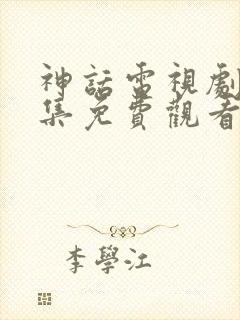 神話電視劇
集免費觀看
李學江